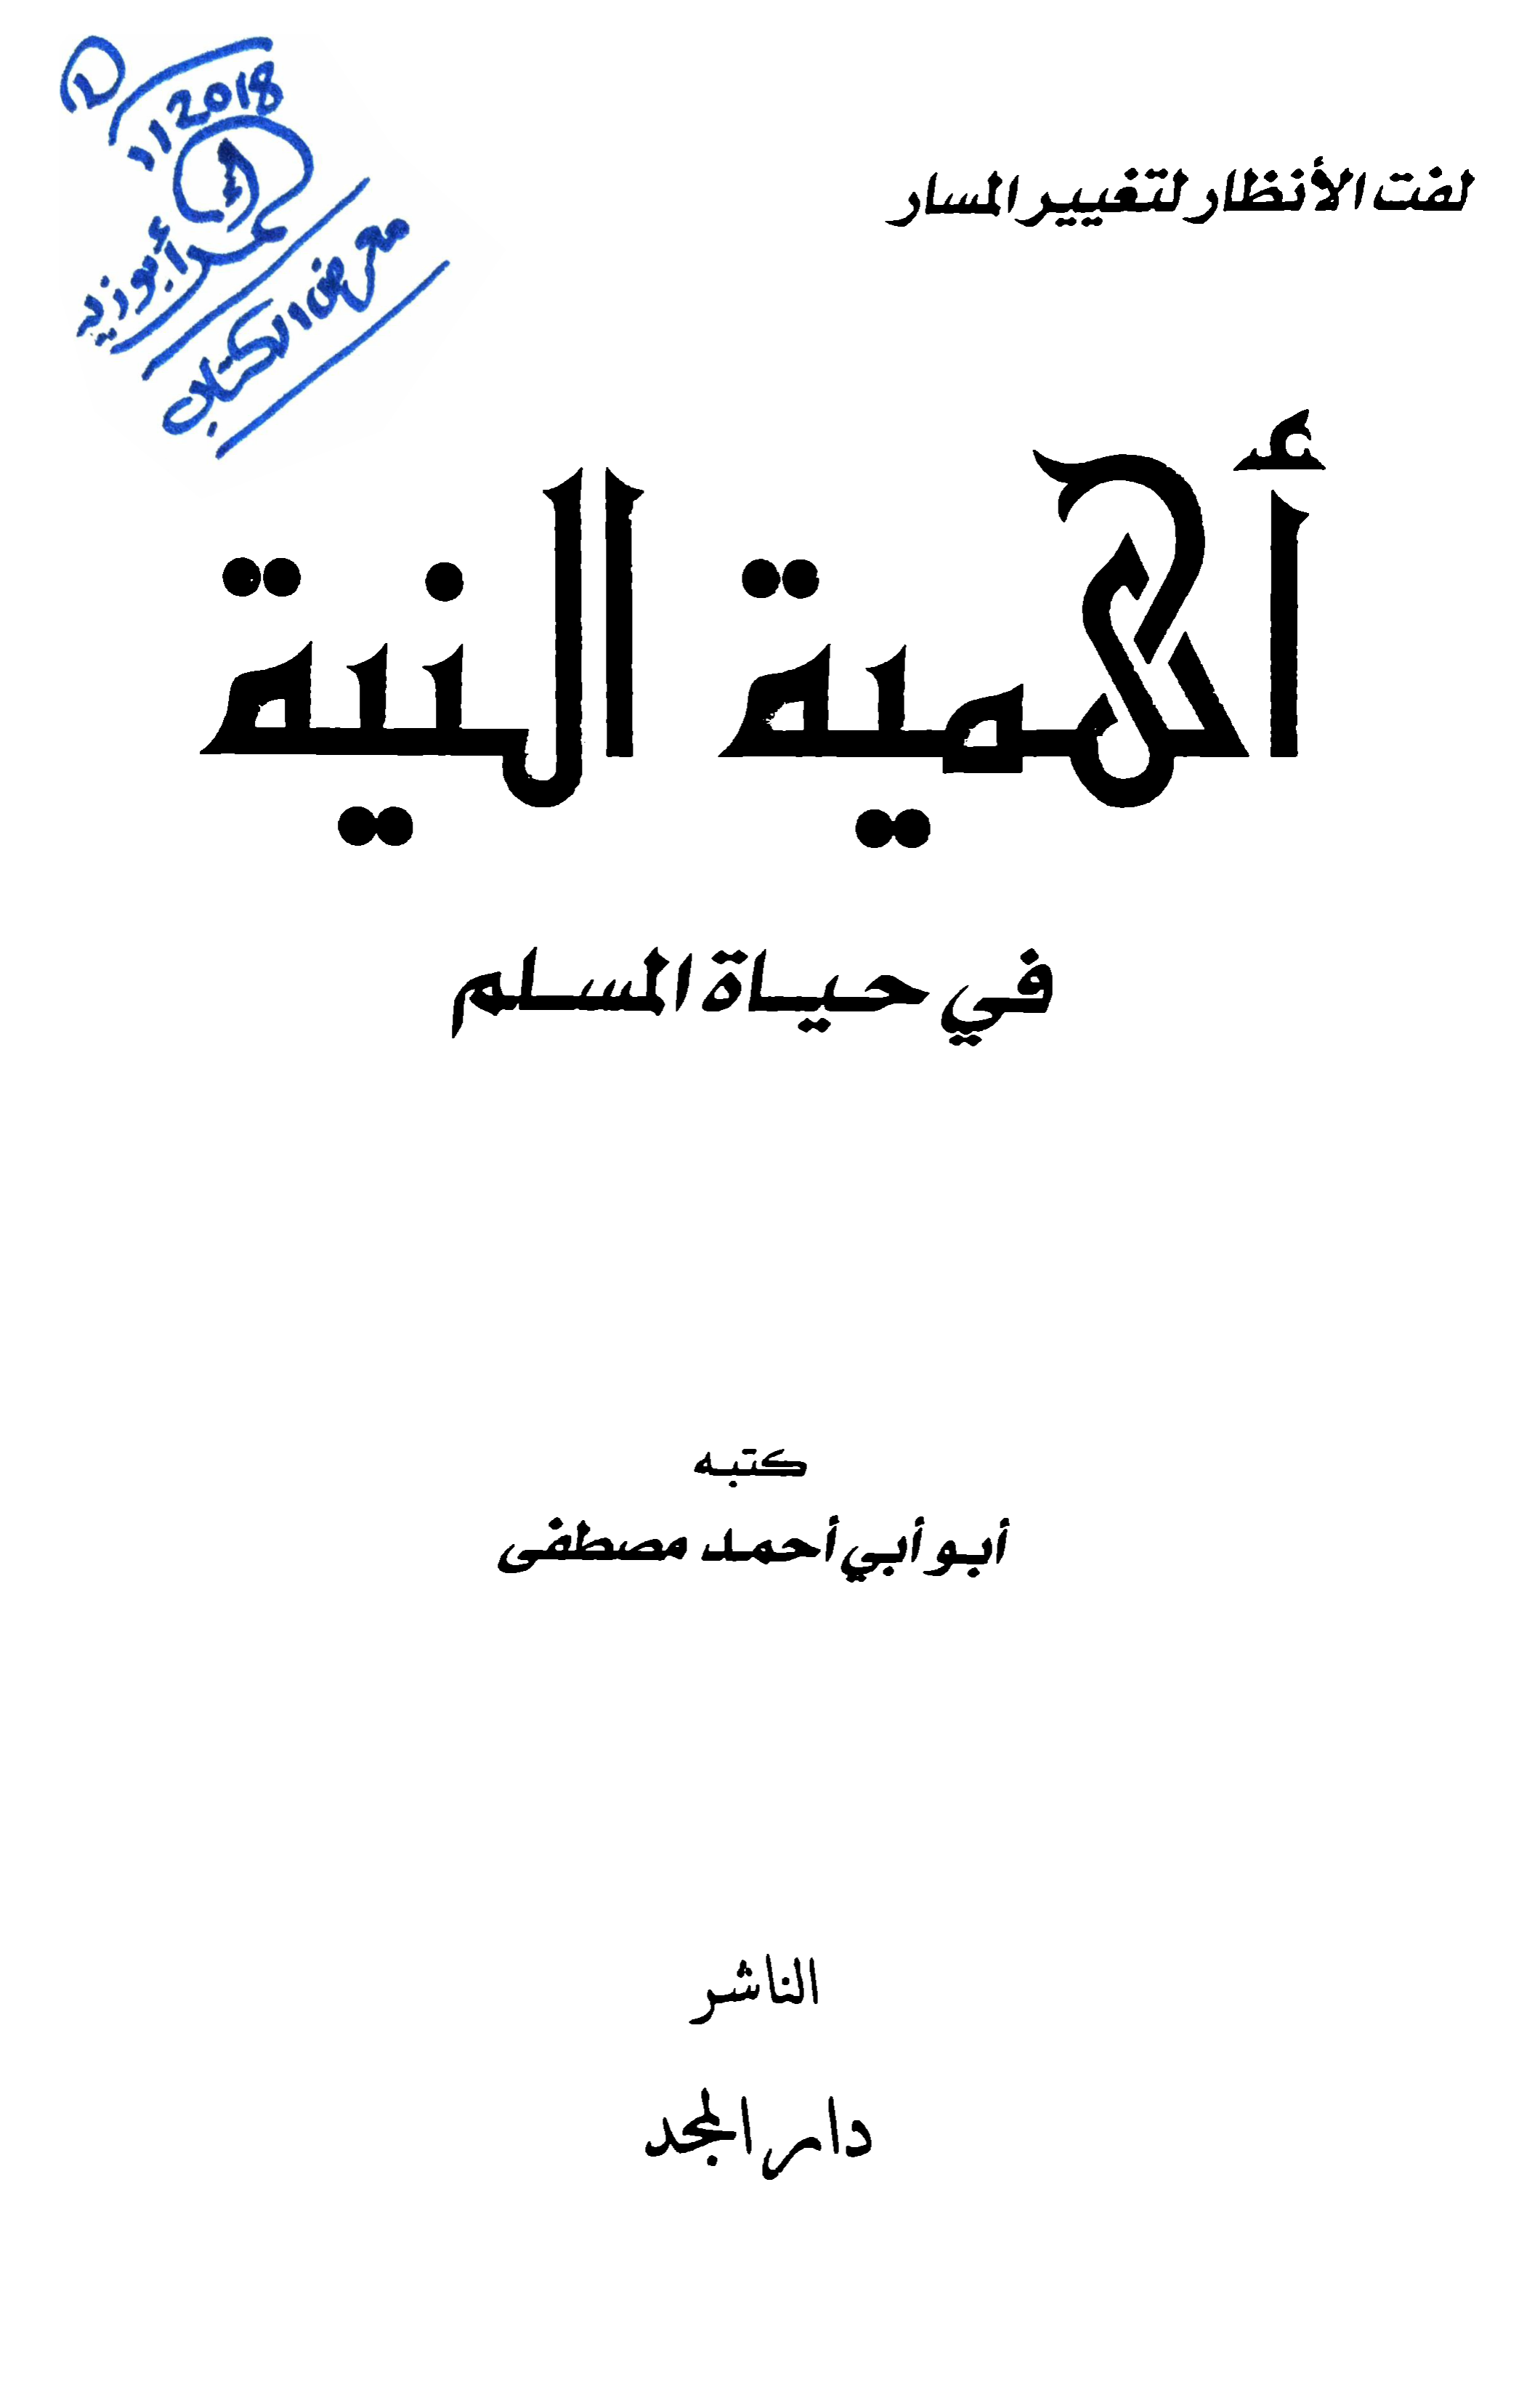 2018
لفت الأنظار لتغيير المسار
أهمية النية
في حياة المسلم
كتبه
أبو أبي أحمد مصطفى
الناشر
دار المجد